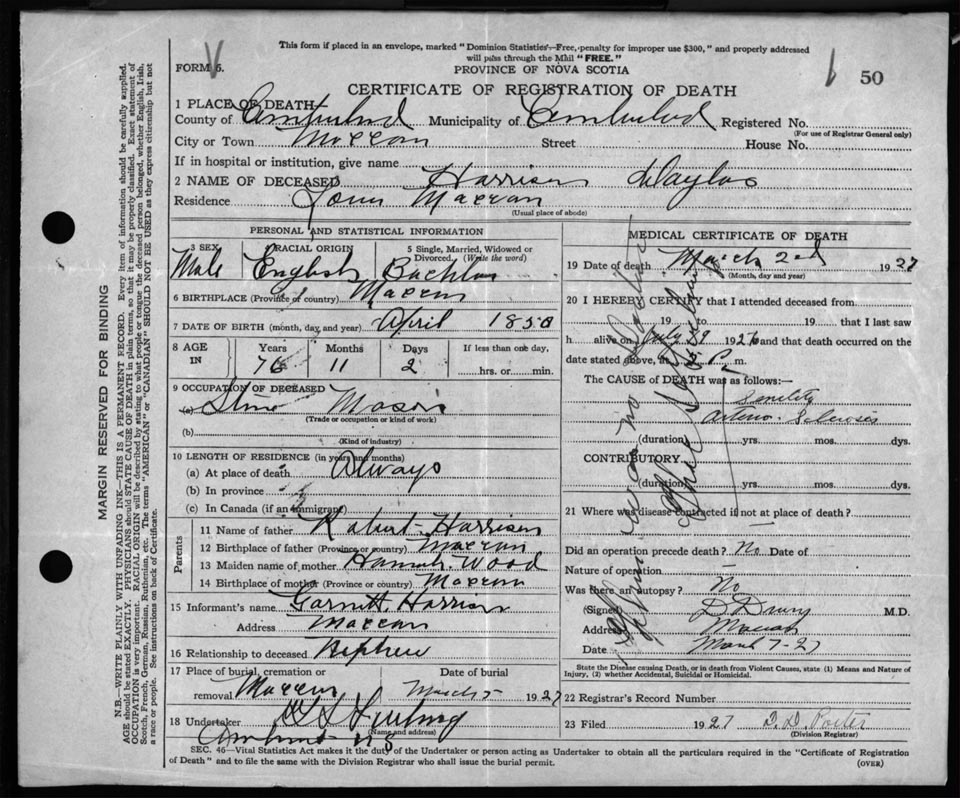 This form if placed in an envelope, marked "Dominion Statistics—Free, penalty for improper use $300," and properly addressed
will pass through the Mail "FREE."
FORM 6.
PROVINCE OF NOVA SCOTIA
50
CERTIFICATE OF REGISTRATION OF DEATH
1 PLACE OF DEATH
County of Cumberland Municipality of Cumberland Registered No.
(For use of Registrar General only)
City or Town Maccan Street House No.
If in hospital or institution, give name
2 NAME OF DECEASED Harrison
Residence Maccan
(Usual place of abode)
PERSONAL AND STATISTICAL INFORMATION
3 SEX RACIAL ORIGIN 5 Single, Married, Widowed or
Divorced. (Write the word)
Male English Bachlor
6 BIRTHPLACE (Province or country) Maccan
7 DATE OF BIRTH (month, day and year) April 1850
8 AGE IN Years Months Days If less than one day,
76 11 2 hrs. or min.
9 OCCUPATION OF DECEASED
(a) Stone Mason
(Trade or occupation or kind of work)
(b)
(Kind of industry)
10 LENGTH OF RESIDENCE (in years and months)
(a) At place of death Always
(b) In province
(c) In Canada (if an immigrant)
Parents
11 Name of father Robert Harrison
12 Birthplace of father (Province or country) Maccan
13 Maiden name of mother Hannah Wood
14 Birthplace of mother (Province or country) Maccan
15 Informant's name Garnett Harrison
Address Maccan
16 Relationship to deceased Nephew
17 Place of burial, cremation or Date of burial
removal Maccan March 5 1927
18 Undertaker
(Name and address)
Amherst N S
MEDICAL CERTIFICATE OF DEATH
19 Date of death March 2nd 1927
(Month, day and year)
20 I HEREBY CERTIFY that I attended deceased from
19 to 19 that I last saw
h alive on July 29 1926 and that death occurred on the
date stated above, at P. m.
The CAUSE of DEATH was as follows:—
Senility
Arterio Sclerosis
(duration) yrs. mos. dys.
CONTRIBUTORY
(duration) yrs. mos. dys.
21 Where was disease contracted if not at place of death?
Did an operation precede death? No Date of
Nature of operation
Was there an autopsy? No
(Signed) M.D.
Address Maccan
Date March 7-27
State the Disease causing Death, or in death from Violent Causes, state (1) Means and Nature of
Injury, (2) whether Accidental, Suicidal or Homicidal.
22 Registrar's Record Number
23 Filed 1927 Porter
(Division Registrar)
SEC. 46—Vital Statistics Act makes it the duty of the Undertaker or person acting as Undertaker to obtain all the particulars required in the "Certificate of Registration
of Death" and to file the same with the Division Registrar who shall issue the burial permit.
(OVER)
MARGIN RESERVED FOR BINDING
N.B.—WRITE PLAINLY WITH UNFADING INK—THIS IS A PERMANENT RECORD. Every item of information should be carefully supplied.
AGE should be stated EXACTLY. PHYSICIANS should STATE CAUSE OF DEATH in plain terms, so that it may be properly classified. Exact statement of
OCCUPATION is very important. RACIAL ORIGIN will be described by stating to what people or tongue the deceased person belonged, whether English, Irish,
Scotch, French, German, Russian, Ruthenian, etc. The terms "AMERICAN" or "CANADIAN" SHOULD NOT BE USED as they express citizenship but not
a race or people. See instructions on back of Certificate.